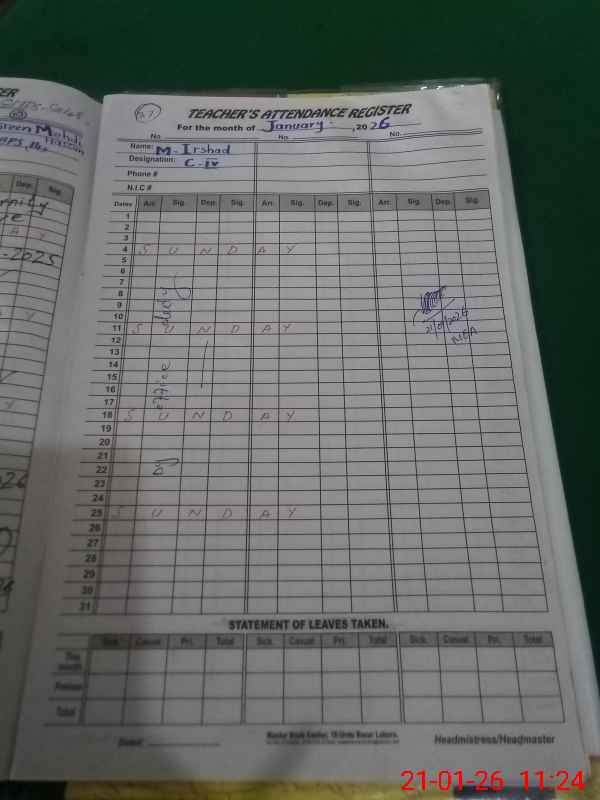 27
TEACHER'S ATTENDANCE REGISTER
For the month of January, 2026
No. No. No.
Name: M-Irshad
Designation: C-IV
Phone #
N.I.C #
Dates Arr. Sig. Dep. Sig. Arr. Sig. Dep. Sig. Arr. Sig. Dep. Sig.
1
2
3
4 S U N D A Y
5
6
7
8
9
10
11 S U N D A Y
12
13
14
15
16
17
18 S U N D A Y
19
20
21
22
23
24
25 S U N D A Y
26
27
28
29
30
31
office duty
21/01/2026
MEA
STATEMENT OF LEAVES TAKEN.
Sick. Casual Pri. Total Sick. Casual Pri. Total Sick. Casual Pri. Total
This month
Previous
Total
Dated:
Headmistress/Headmaster
Dep. Sig.
-2025
21-01-26 11:24